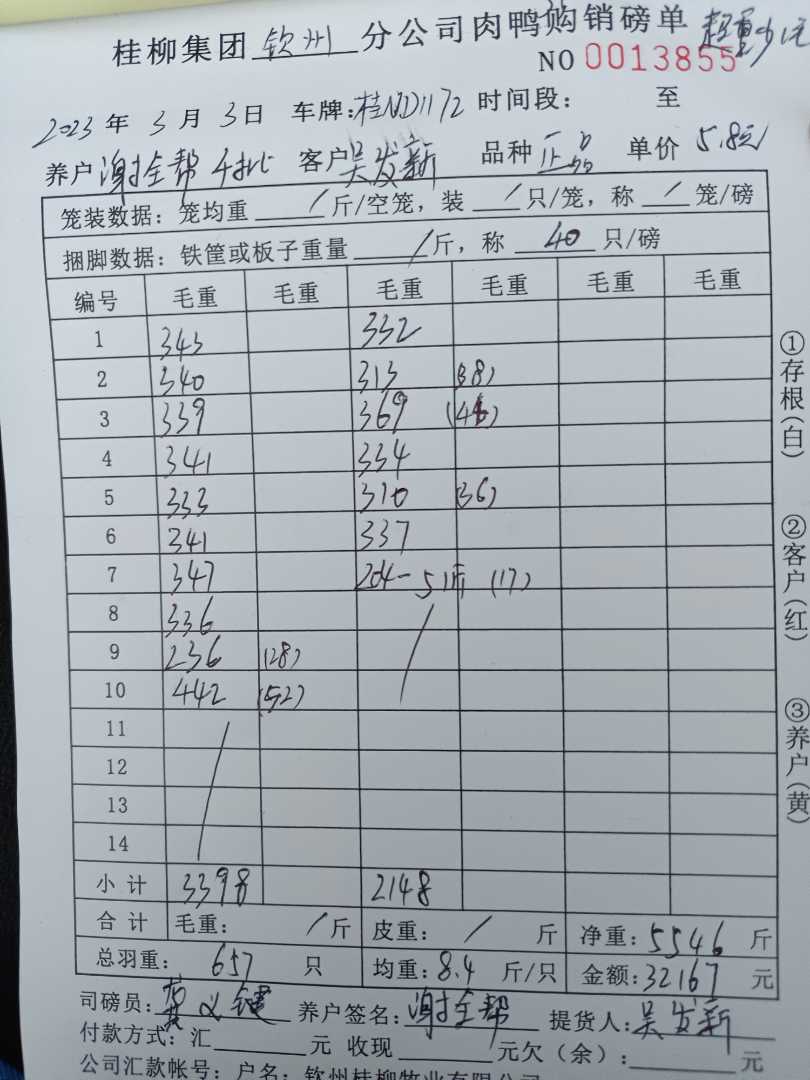 桂柳集团 钦州 分公司肉鸭购销磅单
超重少1元
NO 0013855
2023 年 3 月 3 日 车牌: 桂ND1172 时间段: 至
养户 谢全帮 客户 吴发新 品种 正品 单价 5.8元
笼装数据: 笼均重 / 斤/空笼, 装 / 只/笼, 称 / 笼/磅
捆脚数据: 铁筐或板子重量 / 斤, 称 40 只/磅
编号 毛重 毛重 毛重 毛重 毛重 毛重
1 343 332
2 340 313 (38)
3 339 369
4 341 334
5 333 310 (36)
6 341 337
7 347 204-51斤 (17)
8 336 /
9 236 (28)
10 442 (52)
11 /
12
13
14
小 计 3398 2148
合 计 毛重: / 斤 皮重: / 斤 净重: 5546 斤
总羽重: 657 只 均重: 8.4 斤/只 金额: 32167 元
司磅员: 养户签名: 谢全帮 提货人: 吴发新
付款方式: 汇 元 收现 元欠(余): 元
公司汇款帐号: 户名: 钦州桂柳牧业有限公司
①存根(白)
②客户(红)
③养户(黄)